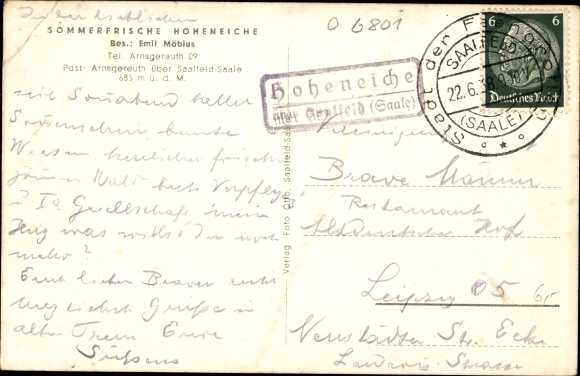 SOMMERFRISCHE HOHENEICHE
Bes.: Emil Möbius
Tel. Arnsgereuth 09
Post: Arnsgereuth über Saalfeld-Saale
685 m ü. d. M.
seit Sonnabend heller
Sonnenschein, bunte
Wiesen, herrlicher frischer
grüner Wald, beste Verpfleg.
u. Ia Gesellschaft, mein
Herz was willst du noch
mehr?
Euch lieben Braven recht
herzlichste Grüße in
alter Treue Eure
O 6801
Hoheneiche
über Saalfeld (Saale)
Stadt der Feengrotten
SAALFELD
22.6.38
(SAALE)
6 6
Deutsches Reich
Verlag: Foto Otto, Saalfeld-Saale
Brave Männer
Restaurant
Altdeutscher Hof
Leipzig O5
Neustädter Str. Ecke
Ludwig-Strasse